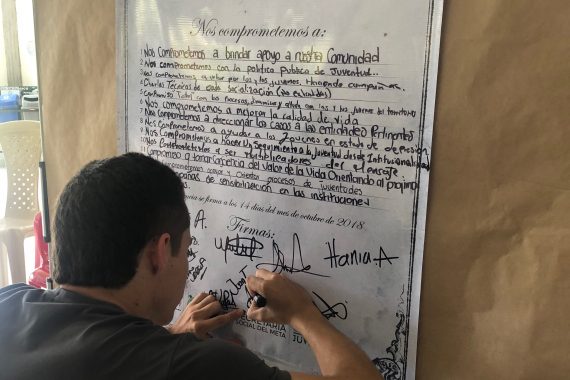 Nos comprometemos a:
1 Nos Comprometemos a brindar apoyo a nuestra Comunidad
2. Nos comprometemos con la politica publica de Juventud...
3. Nos comprometemos a velar por los y las jovenes. Haciendo campañas.
4. Charlas Tecnicas de socialización
5. Compromiso Total con los procesos, dinamicas y con los y las jovenes del territorio
6 Nos comprometemos a mejorar la calidad de vida
7 Nos Comprometemos a direccionar los casos a las entidades Pertinentes
8 Nos Comprometemos a ayudar a los Jovenes en estado de depresión
9 Nos Comprometemos a hacer un seguimiento a la juventud desde Institucionalidad
10 Nos Comprometemos a ser multiplicadores del mensaje
11 Compromiso a tomar conciencia del valor de la Vida Orientando al projimo
procesos de juventudes
de sensibilización en las instituciones
se firma a los 14 días del mes de octubre de 2018.
Firmas:
A.
Hania A
SECRETARIA
SOCIAL DEL META